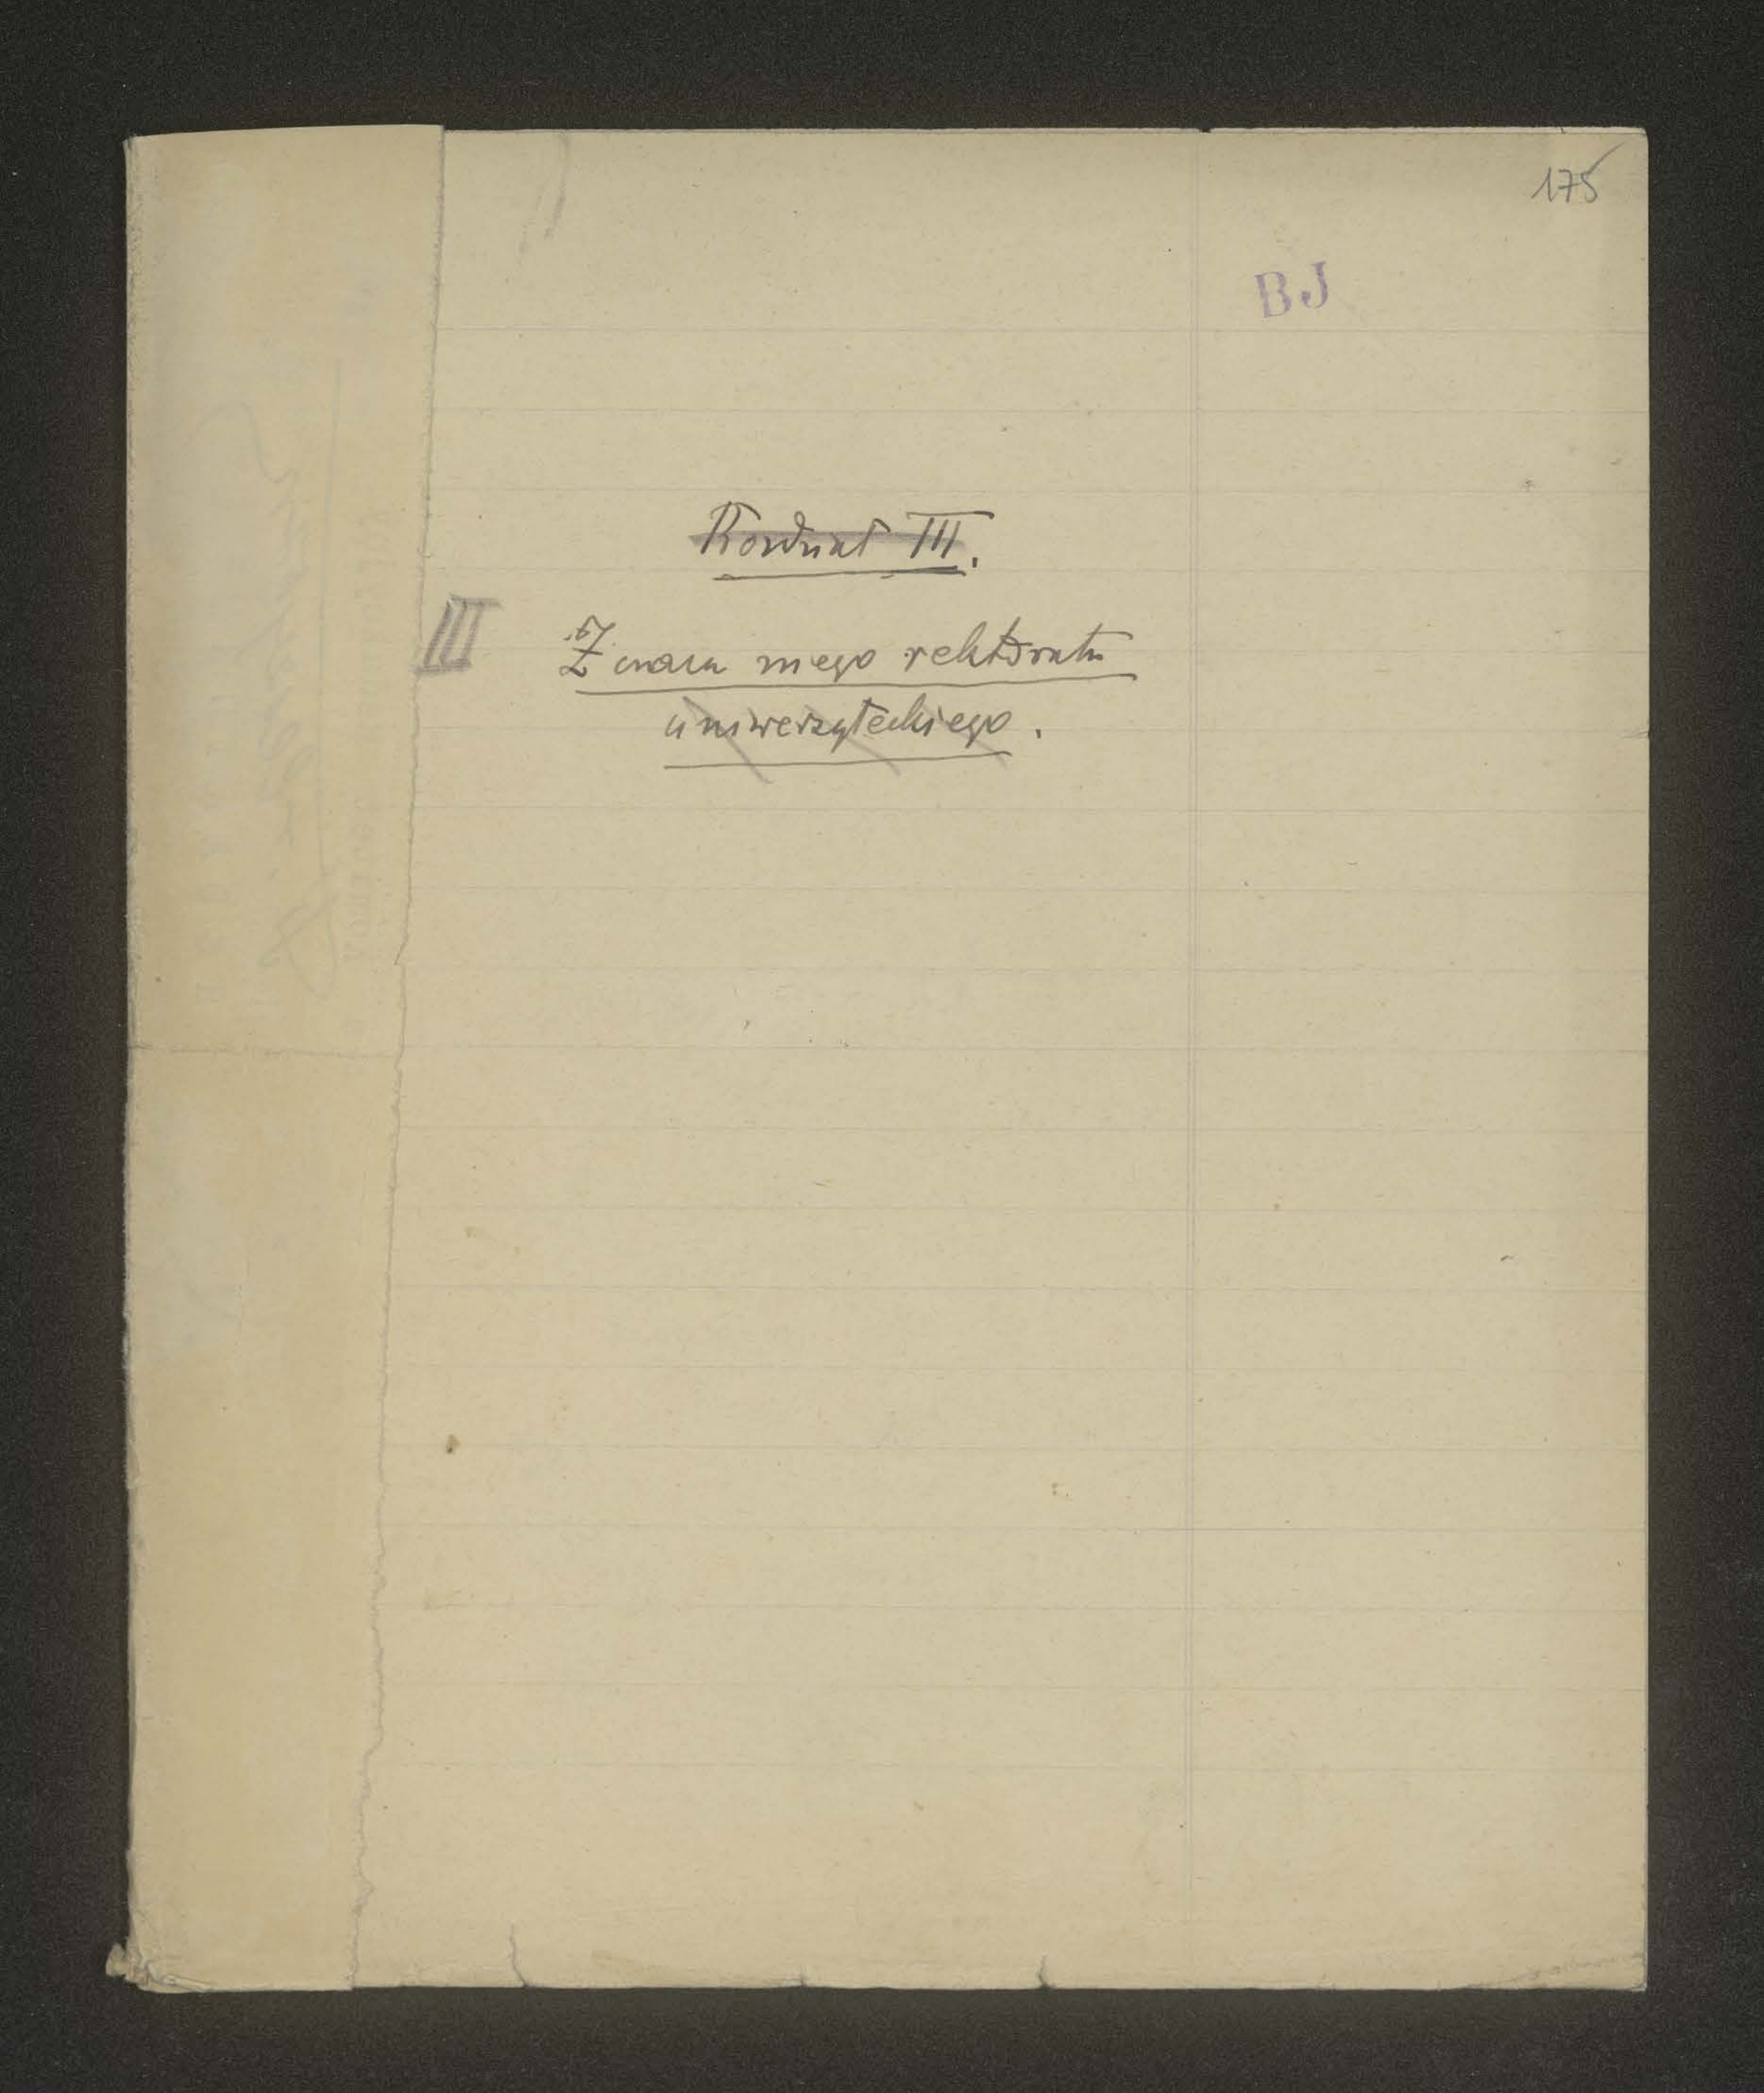 175
BJ
Rozdział III.
III Z czasu mego rektoratu
uniwersyteckiego.